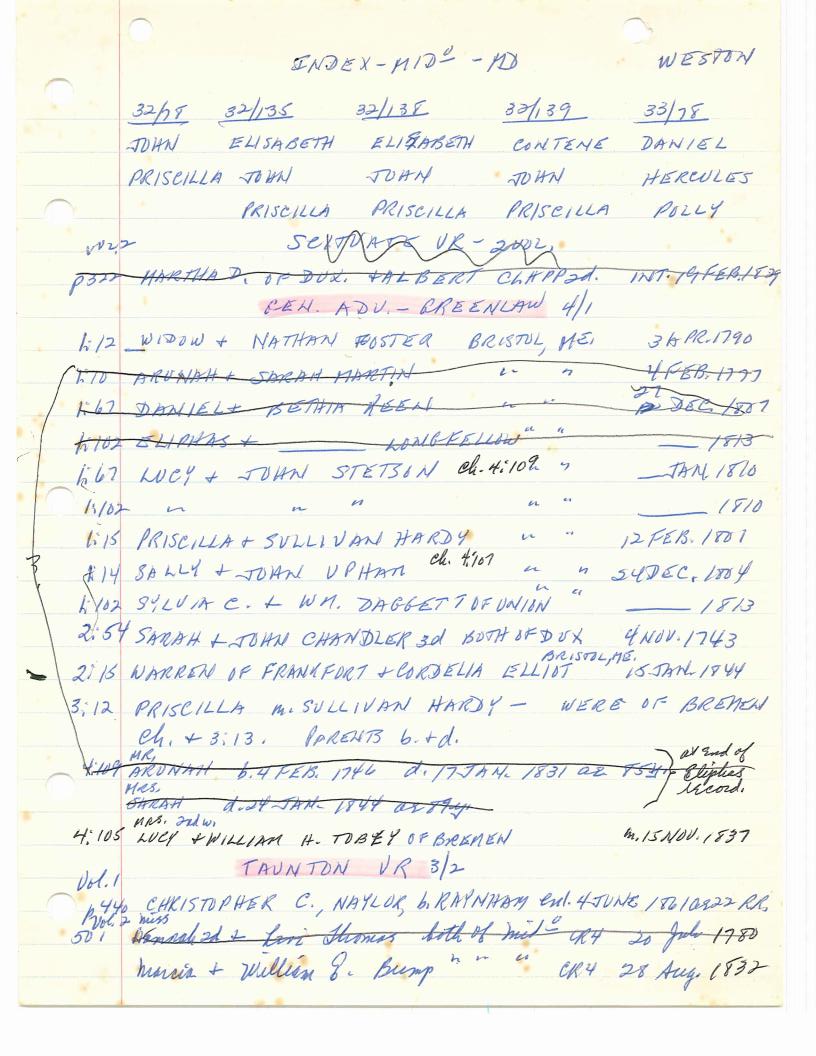 INDEX-MIDº - MD WESTON
32/78 32/135 32/138 32/139 33/78
JOHN ELISABETH ELISABETH CONTENE DANIEL
PRISCILLA JOHN JOHN JOHN HERCULES
PRISCILLA PRISCILLA PRISCILLA POLLY
Vol. 2 SCITUATE VR - 2 VOL.
p322 MARTHA D. OF DUX. + ALBERT CLAPP 2d. INT. 19 FEB. 1829
GEN. ADV. - GREENLAW 4/1
1:12 __ WIDOW + NATHAN FOSTER BRISTOL, ME. 3 APR. 1790
1:10 ARUNAH + SARAH MARTIN " " 4 FEB. 1777
27
1:67 DANIEL + BETHIA KEEN " " DEC. 1807
1:102 ELIPHAS + ____ LONGFELLOW " " ____ 1813
1:67 LUCY + JOHN STETSON ch. 4:109 " " __ JAN. 1810
1:102 " " " " " ____ 1810
1:15 PRISCILLA + SULLIVAN HARDY " " 12 FEB. 1807
ch. 4:107
1:14 SALLY + JOHN UPHAM " " 24 DEC. 1804
1:102 SYLVIA C. + WM. DAGGETT OF UNION " " ____ 1813
2:54 SARAH + JOHN CHANDLER 3d BOTH OF DUX 4 NOV. 1743
BRISTOL, ME.
2:15 WARREN OF FRANKFORT + CORDELIA ELLIOT 15 JAN. 1844
3:12 PRISCILLA m. SULLIVAN HARDY - WERE OF BREMEN
ch. + 3:13. PARENTS b. + d.
MR.
4:109 ARUNAH b. 4 FEB. 1746 d. 17 JAN. 1831 ae 85y at end of Eliphas record.
MRS.
SARAH d. 24 JAN. 1844 ae 89y
MRS. 2nd w.
4:105 LUCY + WILLIAM H. TOBEY OF BREMEN m. 15 NOV. 1837
TAUNTON VR 3/2
Vol. 1
p. 440 CHRISTOPHER C., NAYLOR, b. RAYNHAM enl. 4 JUNE 1861 ae 22 RR.
Vol. 2 miss
501 Hannah 2d + Levi Thomas both of Midº CR4 20 July 1780
Marcia + William E. Bump " " " CR4 28 Aug. 1832